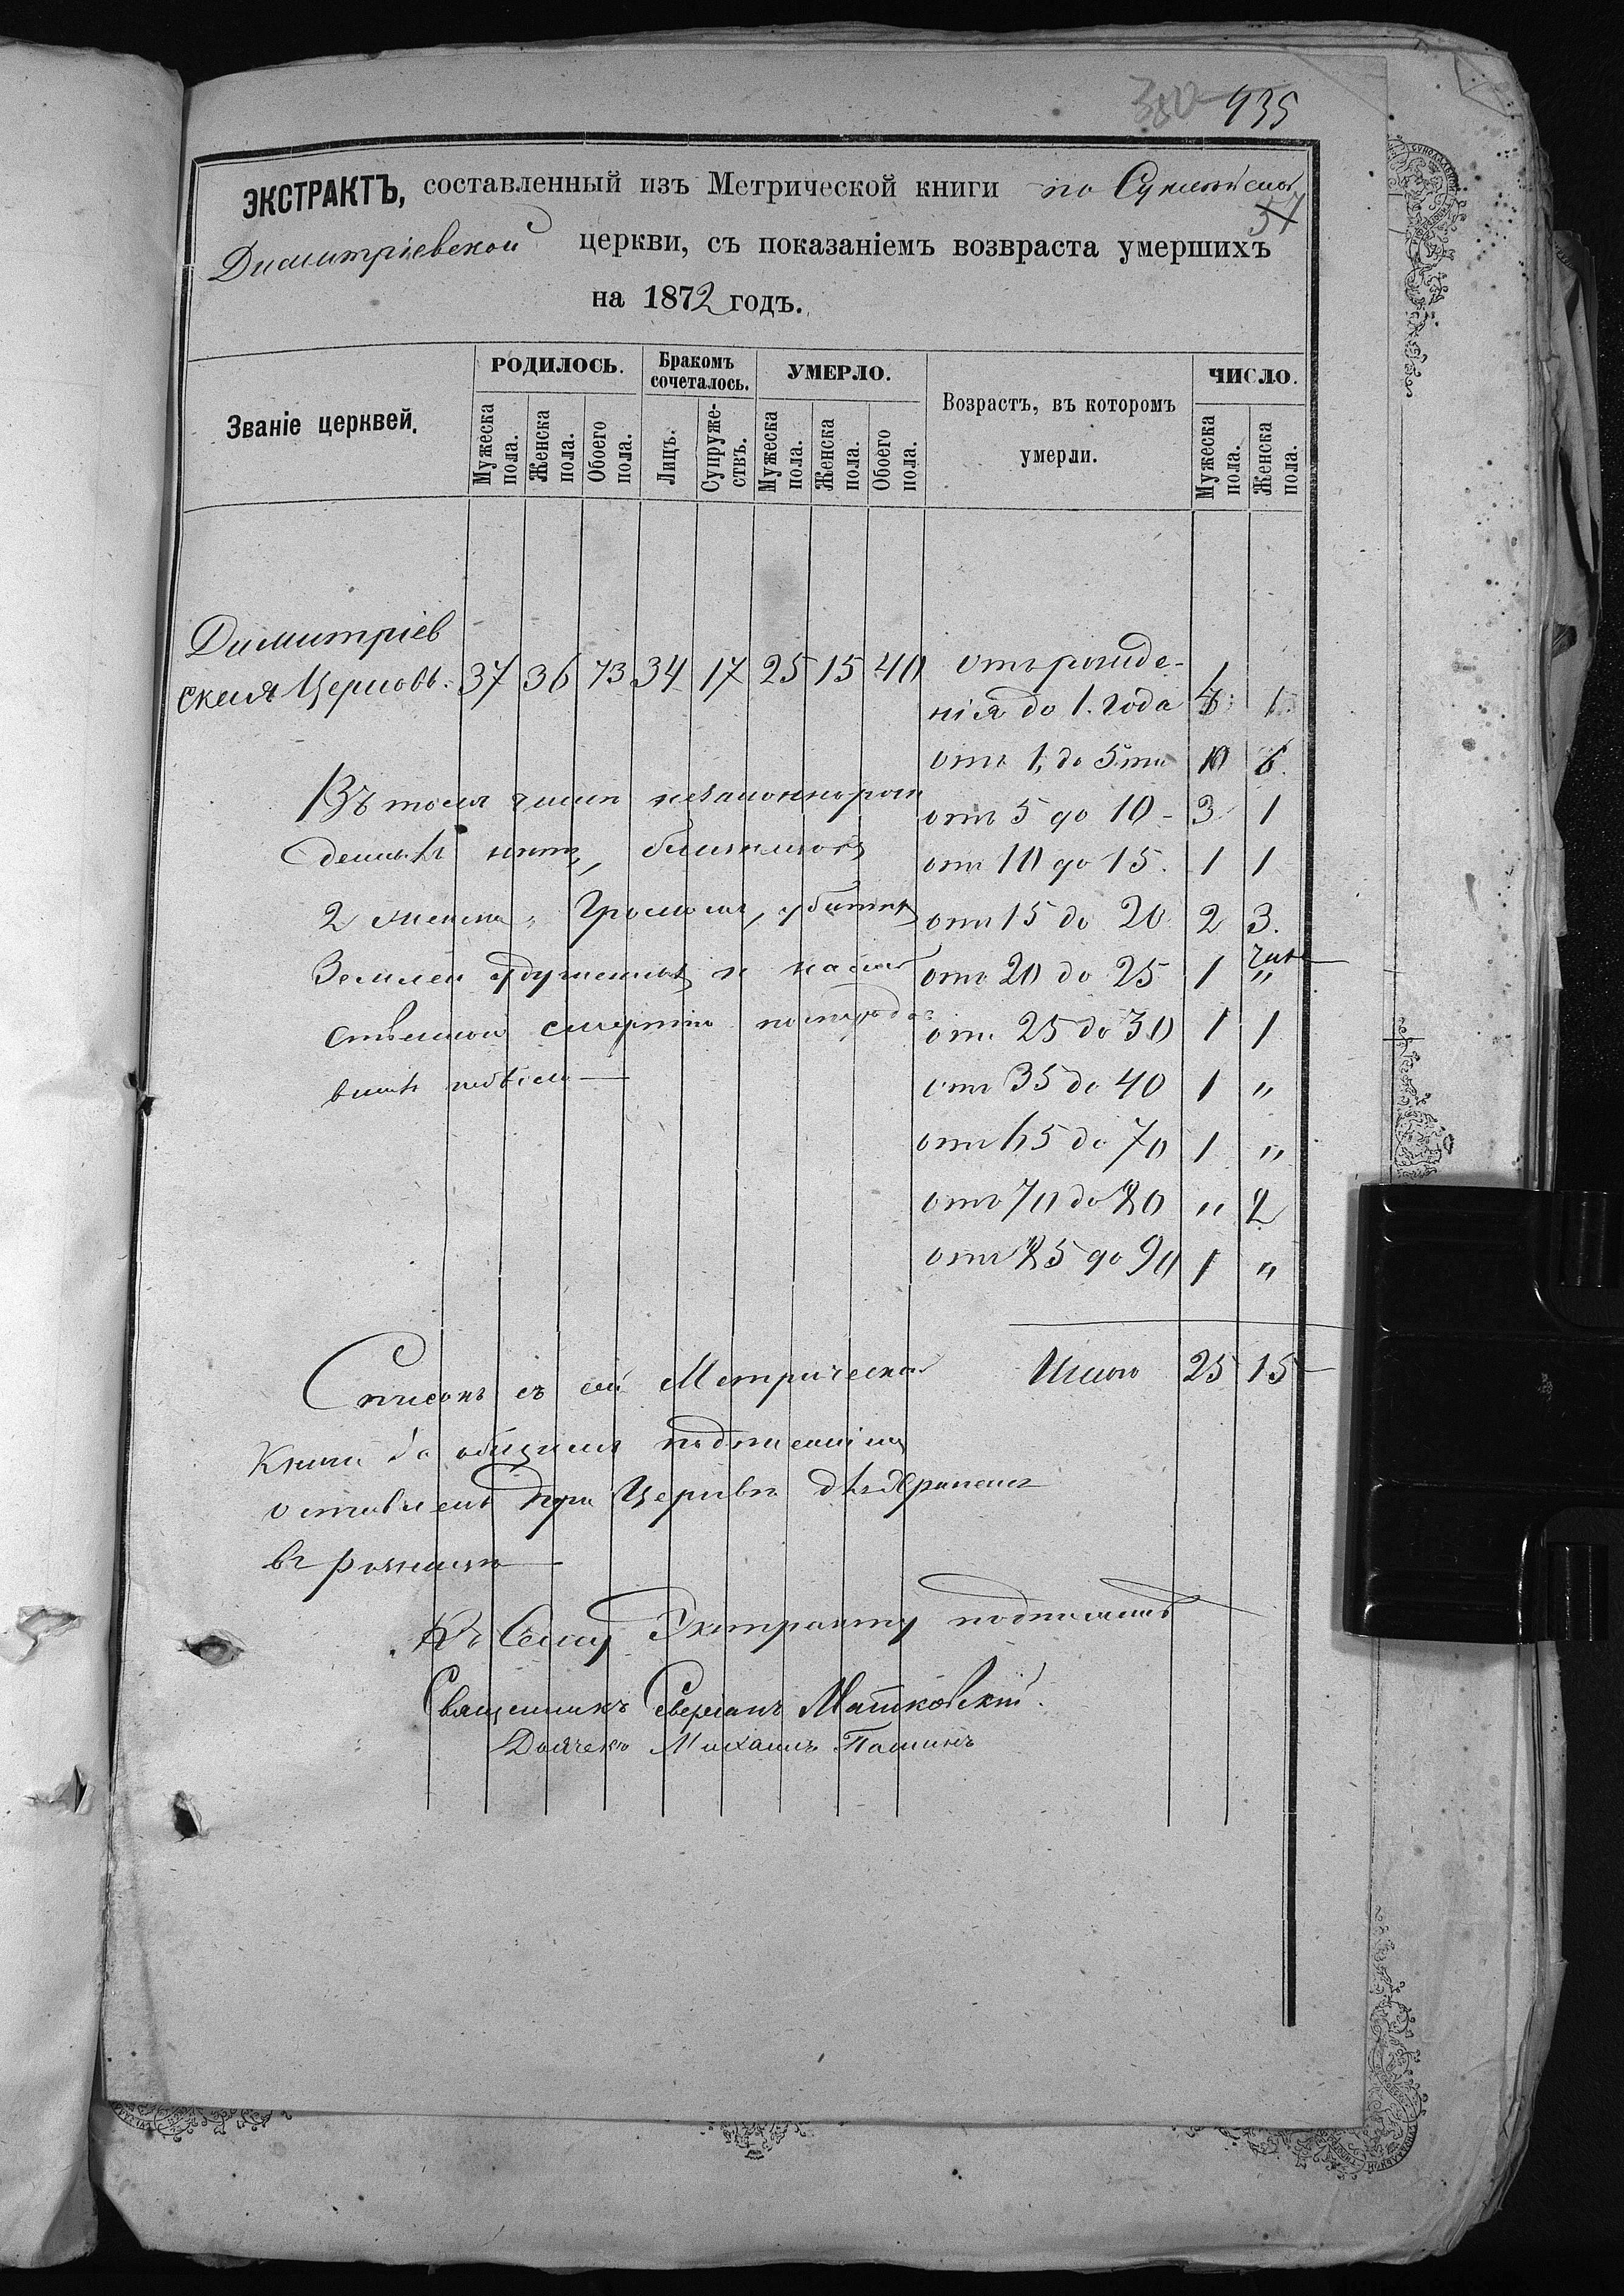 380 935
ЭКСТРАКТЪ, составленный изъ Метрической книги по
57
Димитріевской церкви, съ показаніемъ возвраста умершихъ
на 1872 годъ.
Званіе церквей.
РОДИЛОСЬ.
Мужеска пола.
Женска пола.
Обоего пола.
Бракомъ сочеталось.
Лицъ.
Супружествъ.
УМЕРЛО.
Мужеска пола.
Женска пола.
Обоего пола.
Возрастъ, въ которомъ умерли.
ЧИСЛО.
Мужеска пола.
Женска пола.
Димитріев
ская Церковь. 37 36 73 34 17 25 15 40
отъ рожде-
нія до 1. года 4 1
отъ 1, до 5ти 10 6.
отъ 5 до 10 - 3 1
отъ 10 до 15. 1 1
отъ 15 до 20 2 3.
отъ 20 до 25 1 "
отъ 25 до 30 1 1
отъ 35 до 40 1 "
отъ 65 до 70 1 "
отъ 70 до 80 " 2
отъ 85 до 90 1 "
Итого 25 15
Въ томъ числѣ незаконнорож
денныхъ нѣтъ, близнецовъ
2 Громомъ, убитыхъ
Землей и насиль
ственной смертію
Списокъ съ сей Метрической
Книги за общимъ
оставленъ при Церкви для храненія
въ ризницѣ
Къ Сему Экстракту подписались
Священникъ Матковскій.
Дьячекъ Михаилъ